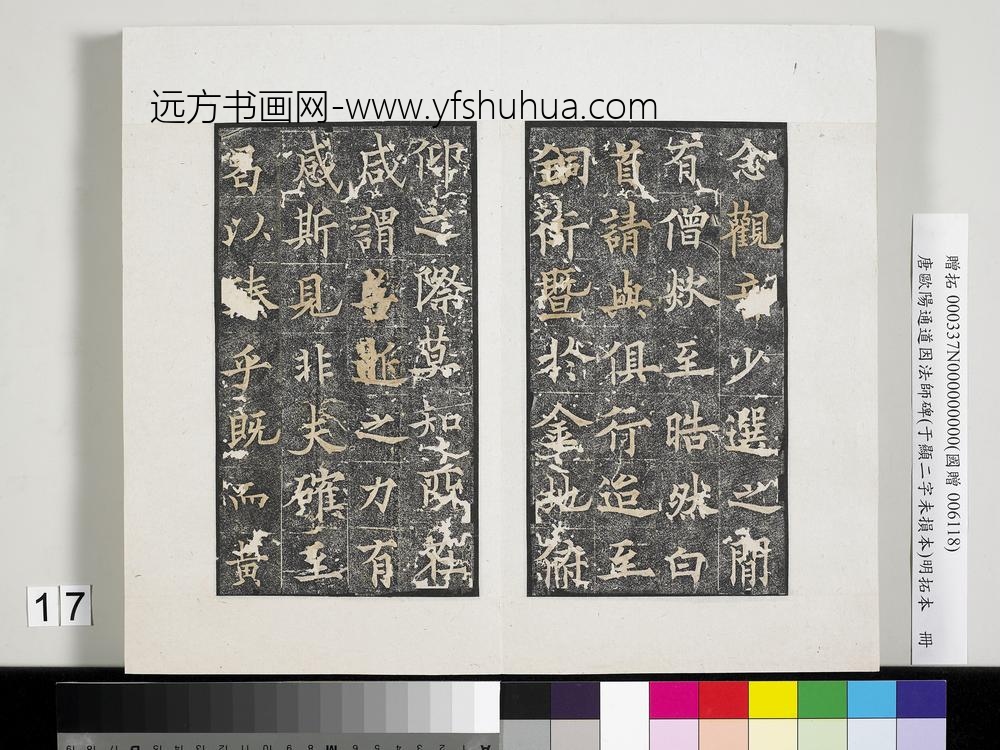 远方书画网-www.yfshuhua.com
念觀音少選之閒
有僧欻至晧然白
首請與俱行迨至
銅街暨於金地俯
仰之際莫知所在
咸謂善逝之力有
感斯見非夫確至
曷以臻乎既而黃
贈拓 000337N000000000(國贈 006118)
唐歐陽通道因法師碑(于顯二字未損本)明拓本 冊
17